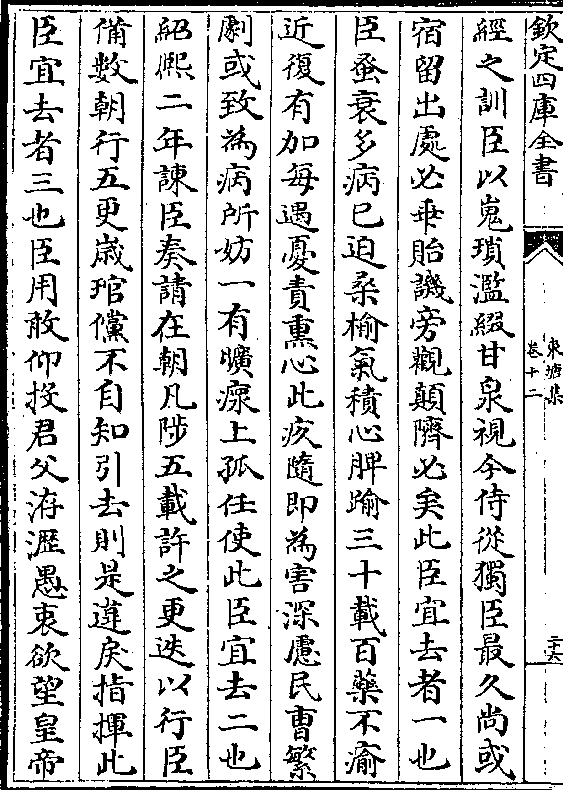 欽定四庫全書
東塘集
卷十二
二十六
經之訓臣以嵬瑣濫綴甘泉視今侍從獨臣最久尚或
宿留出處必乖貽譏旁觀顛隮必矣此臣宜去者一也
臣蚤衰多病已迫桑榆氣積心脾踰三十載百藥不瘉
近復有加每遇憂責熏心此疾隨即為害深慮民曹繁
劇或致為病所妨一有曠瘝上孤任使此臣宜去二也
紹熙二年諫臣奏請在朝凡陟五載許之更迭以行臣
備數朝行五更歲琯儻不自知引去則是違戾指揮此
臣宜去者三也臣用敢仰投君父洊瀝愚衷欲望皇帝